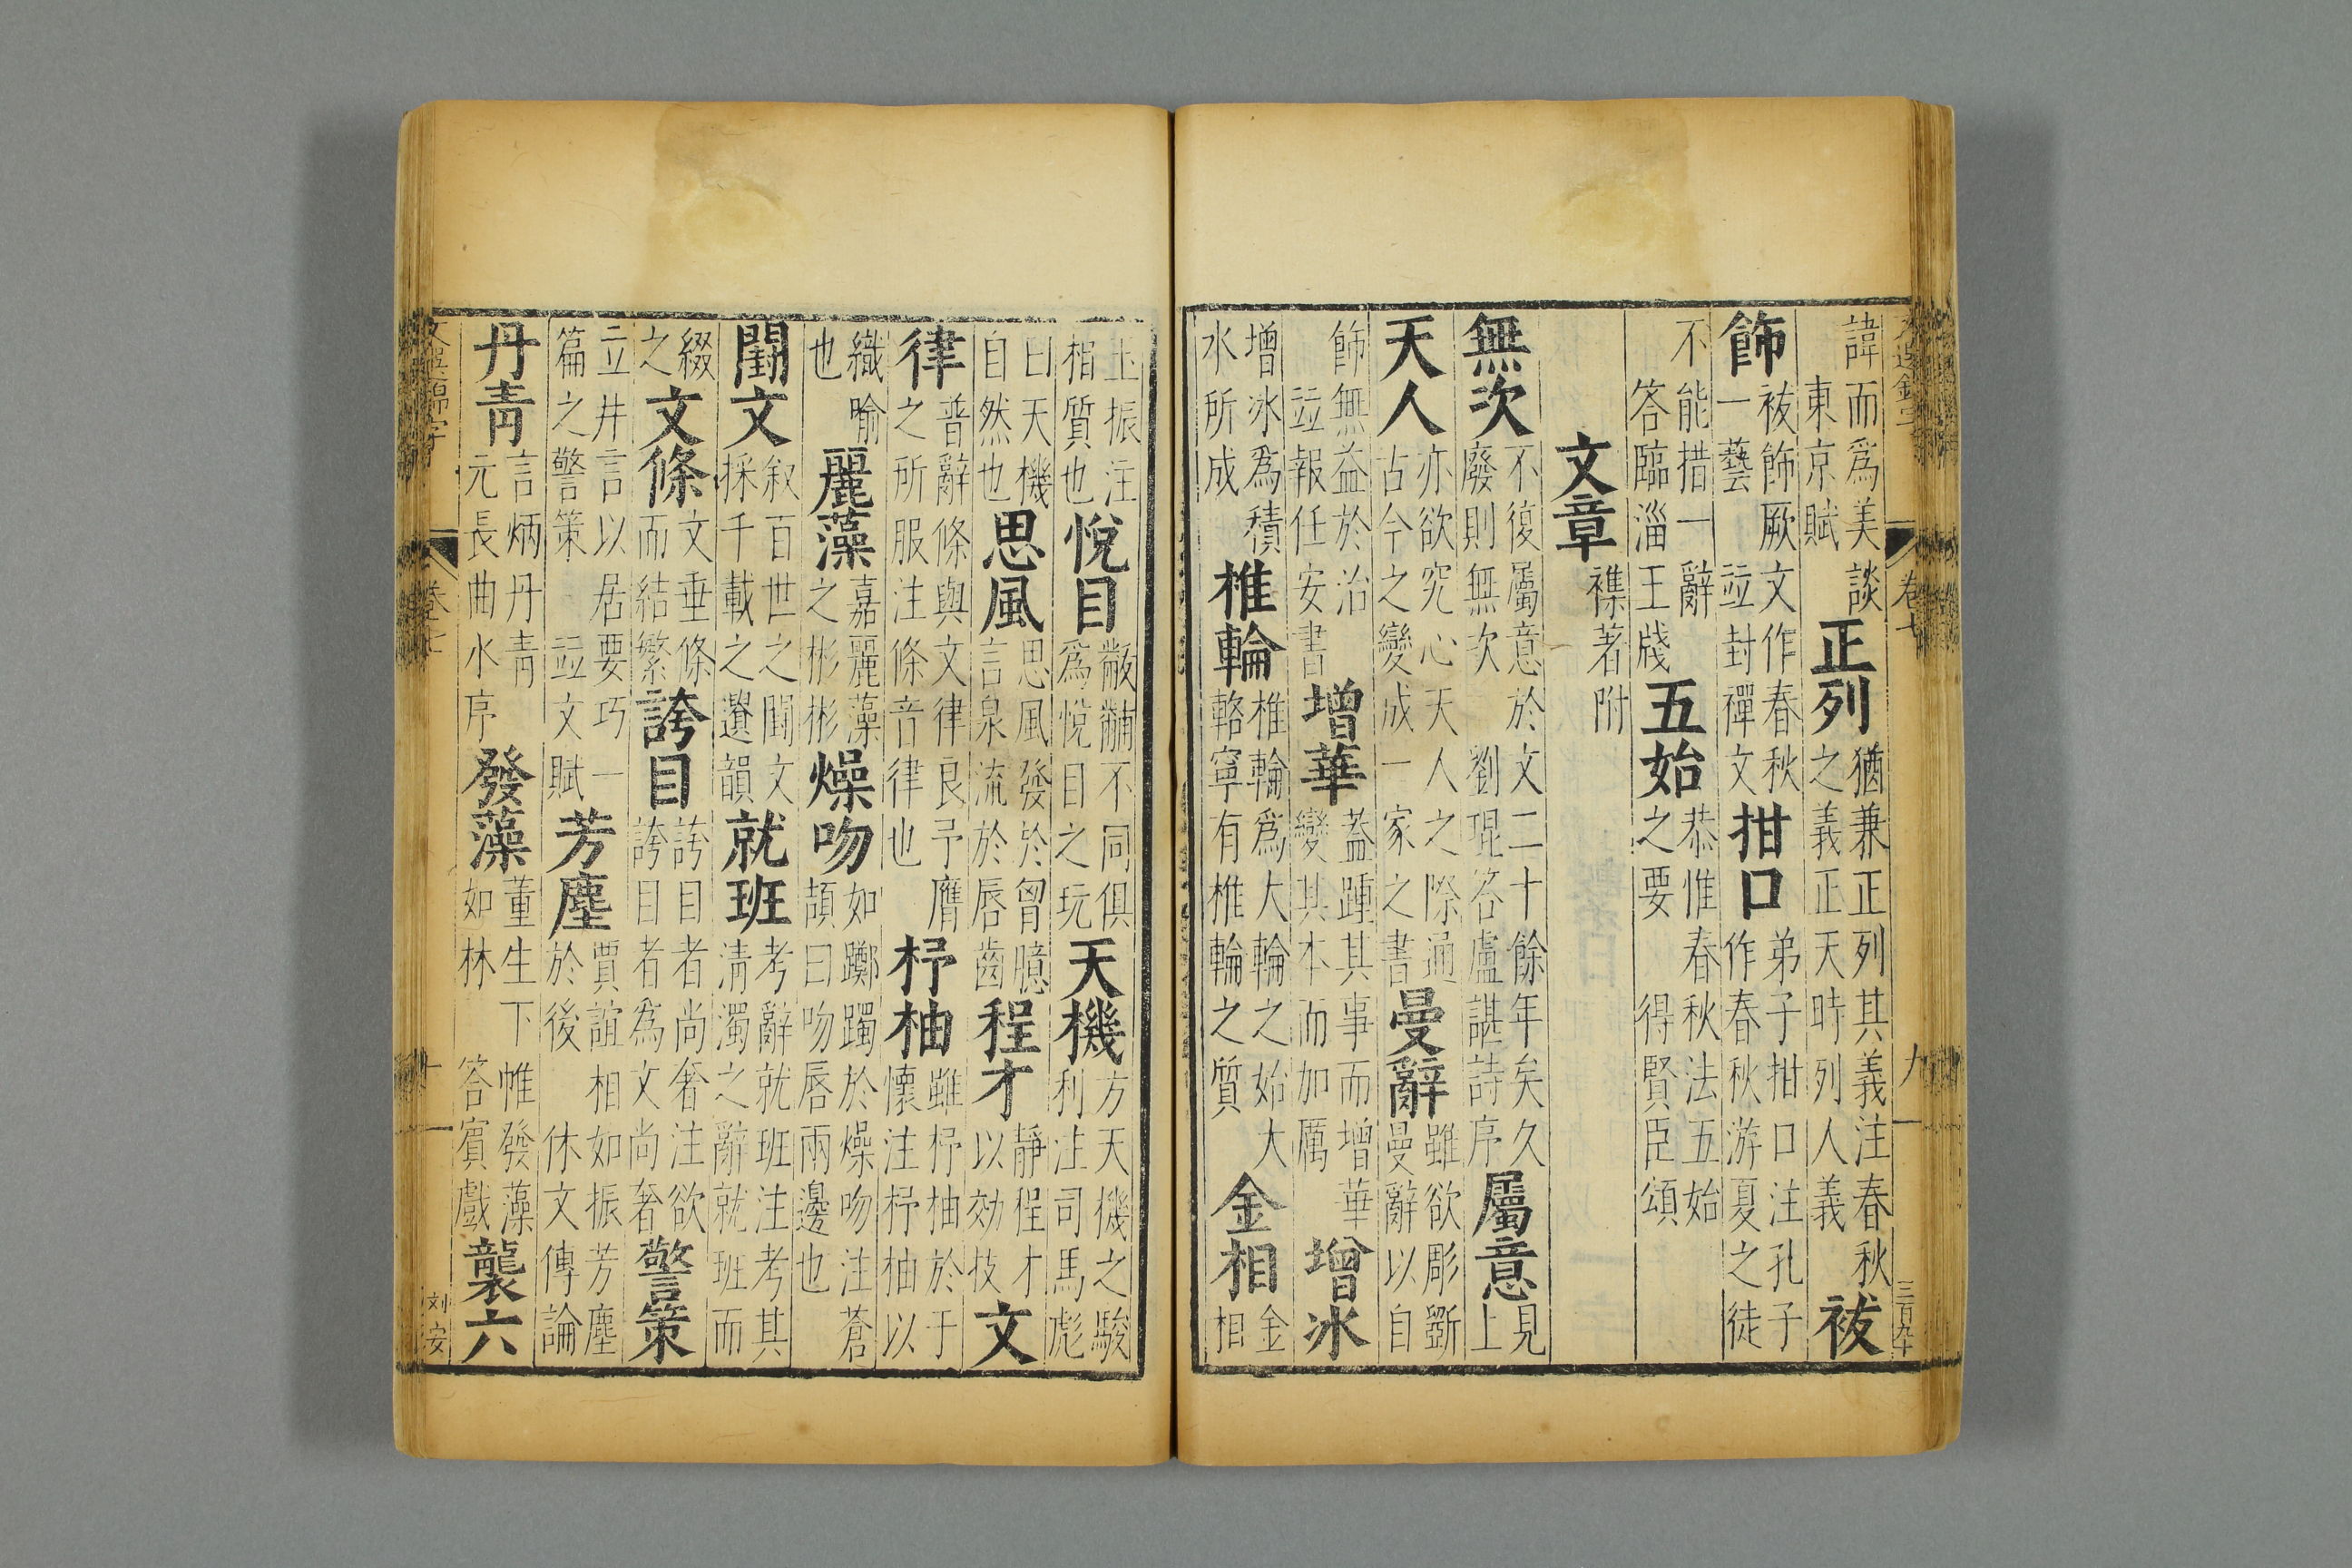 文選錦字 卷七 九 三百九十
諱而爲美談東京賦 正列 猶兼正列其義注春秋之義正天時列人義 祓
飾 祓飾厥文作春秋一藝竝封禪文 拑口 弟子拑口注孔子作春秋游夏之徒
不能措一辭答臨淄王牋 五始 恭惟春秋法五始之要得賢臣頌
文章 襍著附
無次 不復屬意於文二十餘年矣久廢則無次劉琨答盧諶詩序 屬意 見上
天人 亦欲究心天人之際通古今之變成一家之書 曼辭 雖欲彫斵曼辭以自
飾無益於治竝報任安書 增華 蓋踵其事而增華變其本而加厲 增冰
增冰爲積水所成 椎輪 椎輪爲大輪之始大輅寧有椎輪之質 金相 金相
玉振注相質也 悅目 黻黼不同俱爲悅目之玩 天機 方天機之駿利注司馬彪
曰天機自然也 思風 思風發於胷臆言泉流於唇齒 程才 靜程才以効技 文
律 普辭條與文律良予膺之所服注條音律也 杼柚 雖杼柚於于懷注杼柚以
織喻也 麗藻 嘉麗藻之彬彬 燥吻 如躑躅於燥吻注蒼頡曰吻唇兩邊也
闕文 叙百世之闕文採千載之遺韻 就班 考辭就班注考其清濁之辭就班而
綴之 文條 文垂條而結繁 誇目 誇目者尚奢注欲誇目者爲文尚奢 警策
立井言以居要巧一篇之警策竝文賦 芳塵 賈誼相如振芳塵於後休文傳論
丹青 言炳丹青元長曲水序 發藻 董生下帷發藻如林答賓戲 襲六
文選錦字 卷七 十 刘安